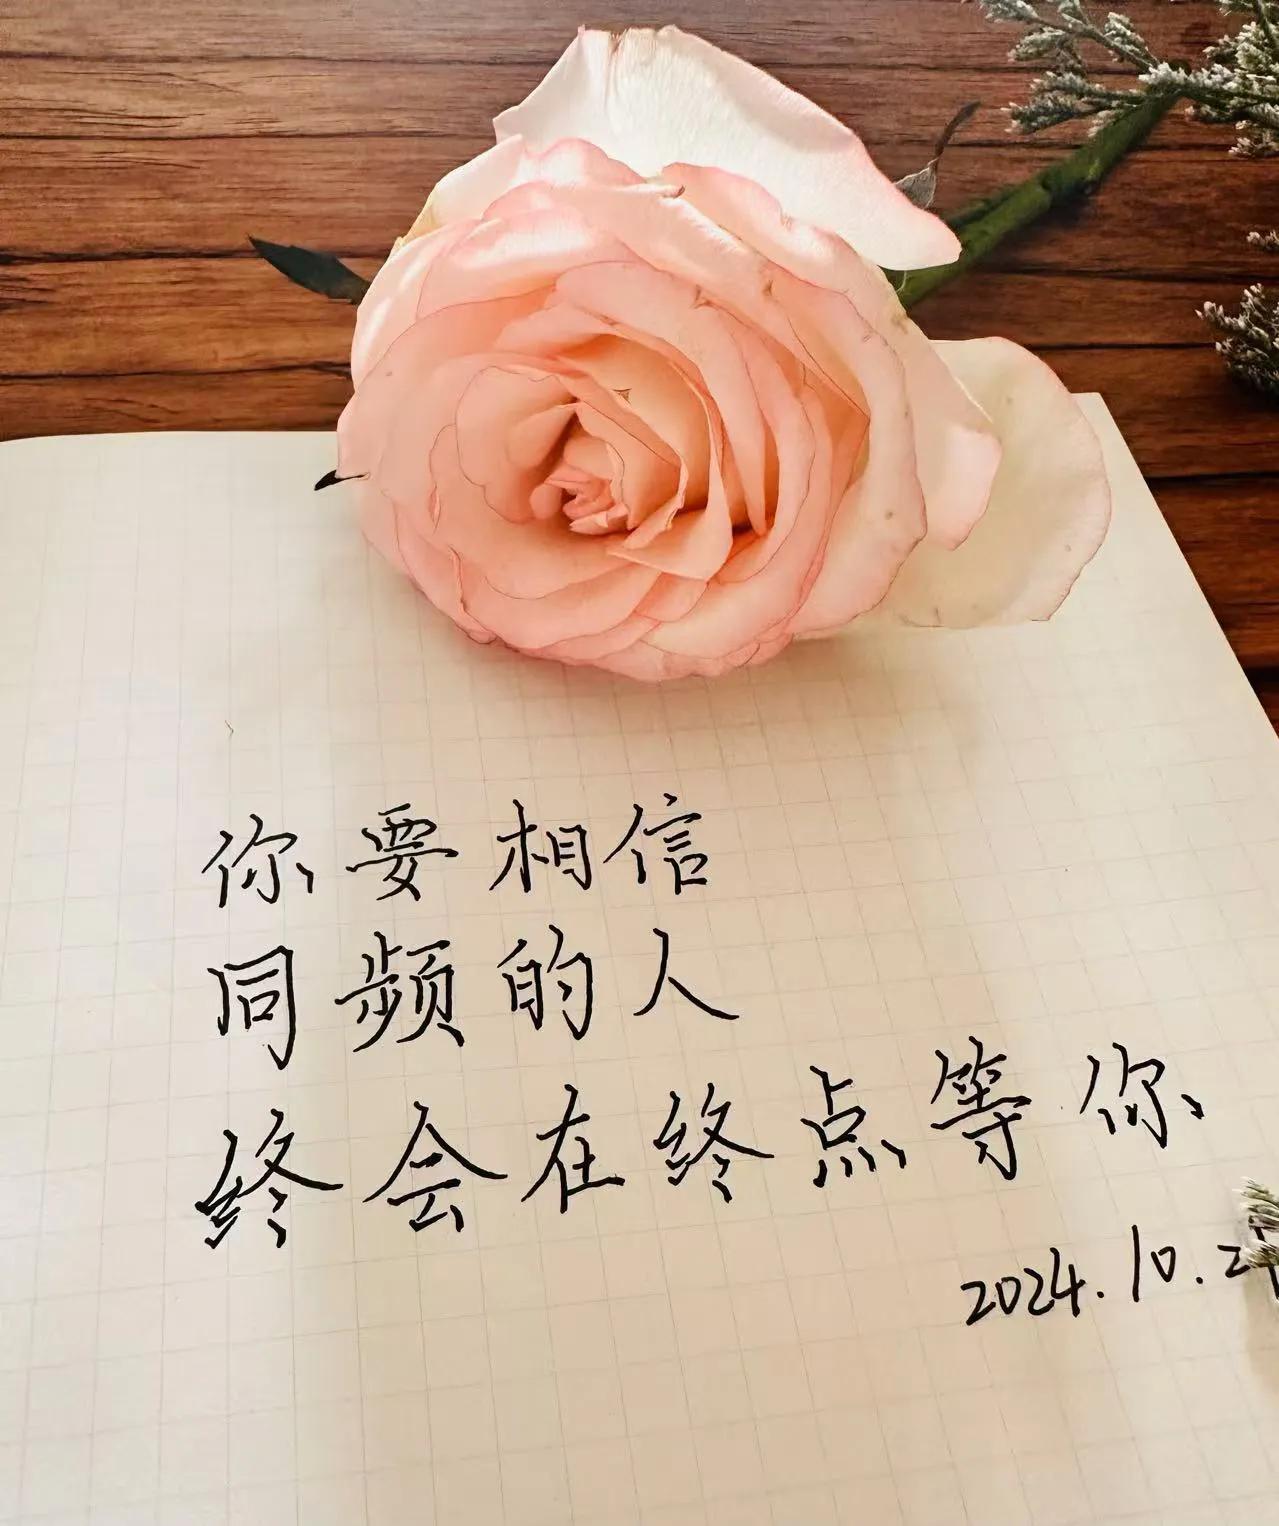 你要相信
同频的人
终会在终点等你
2024.10.2